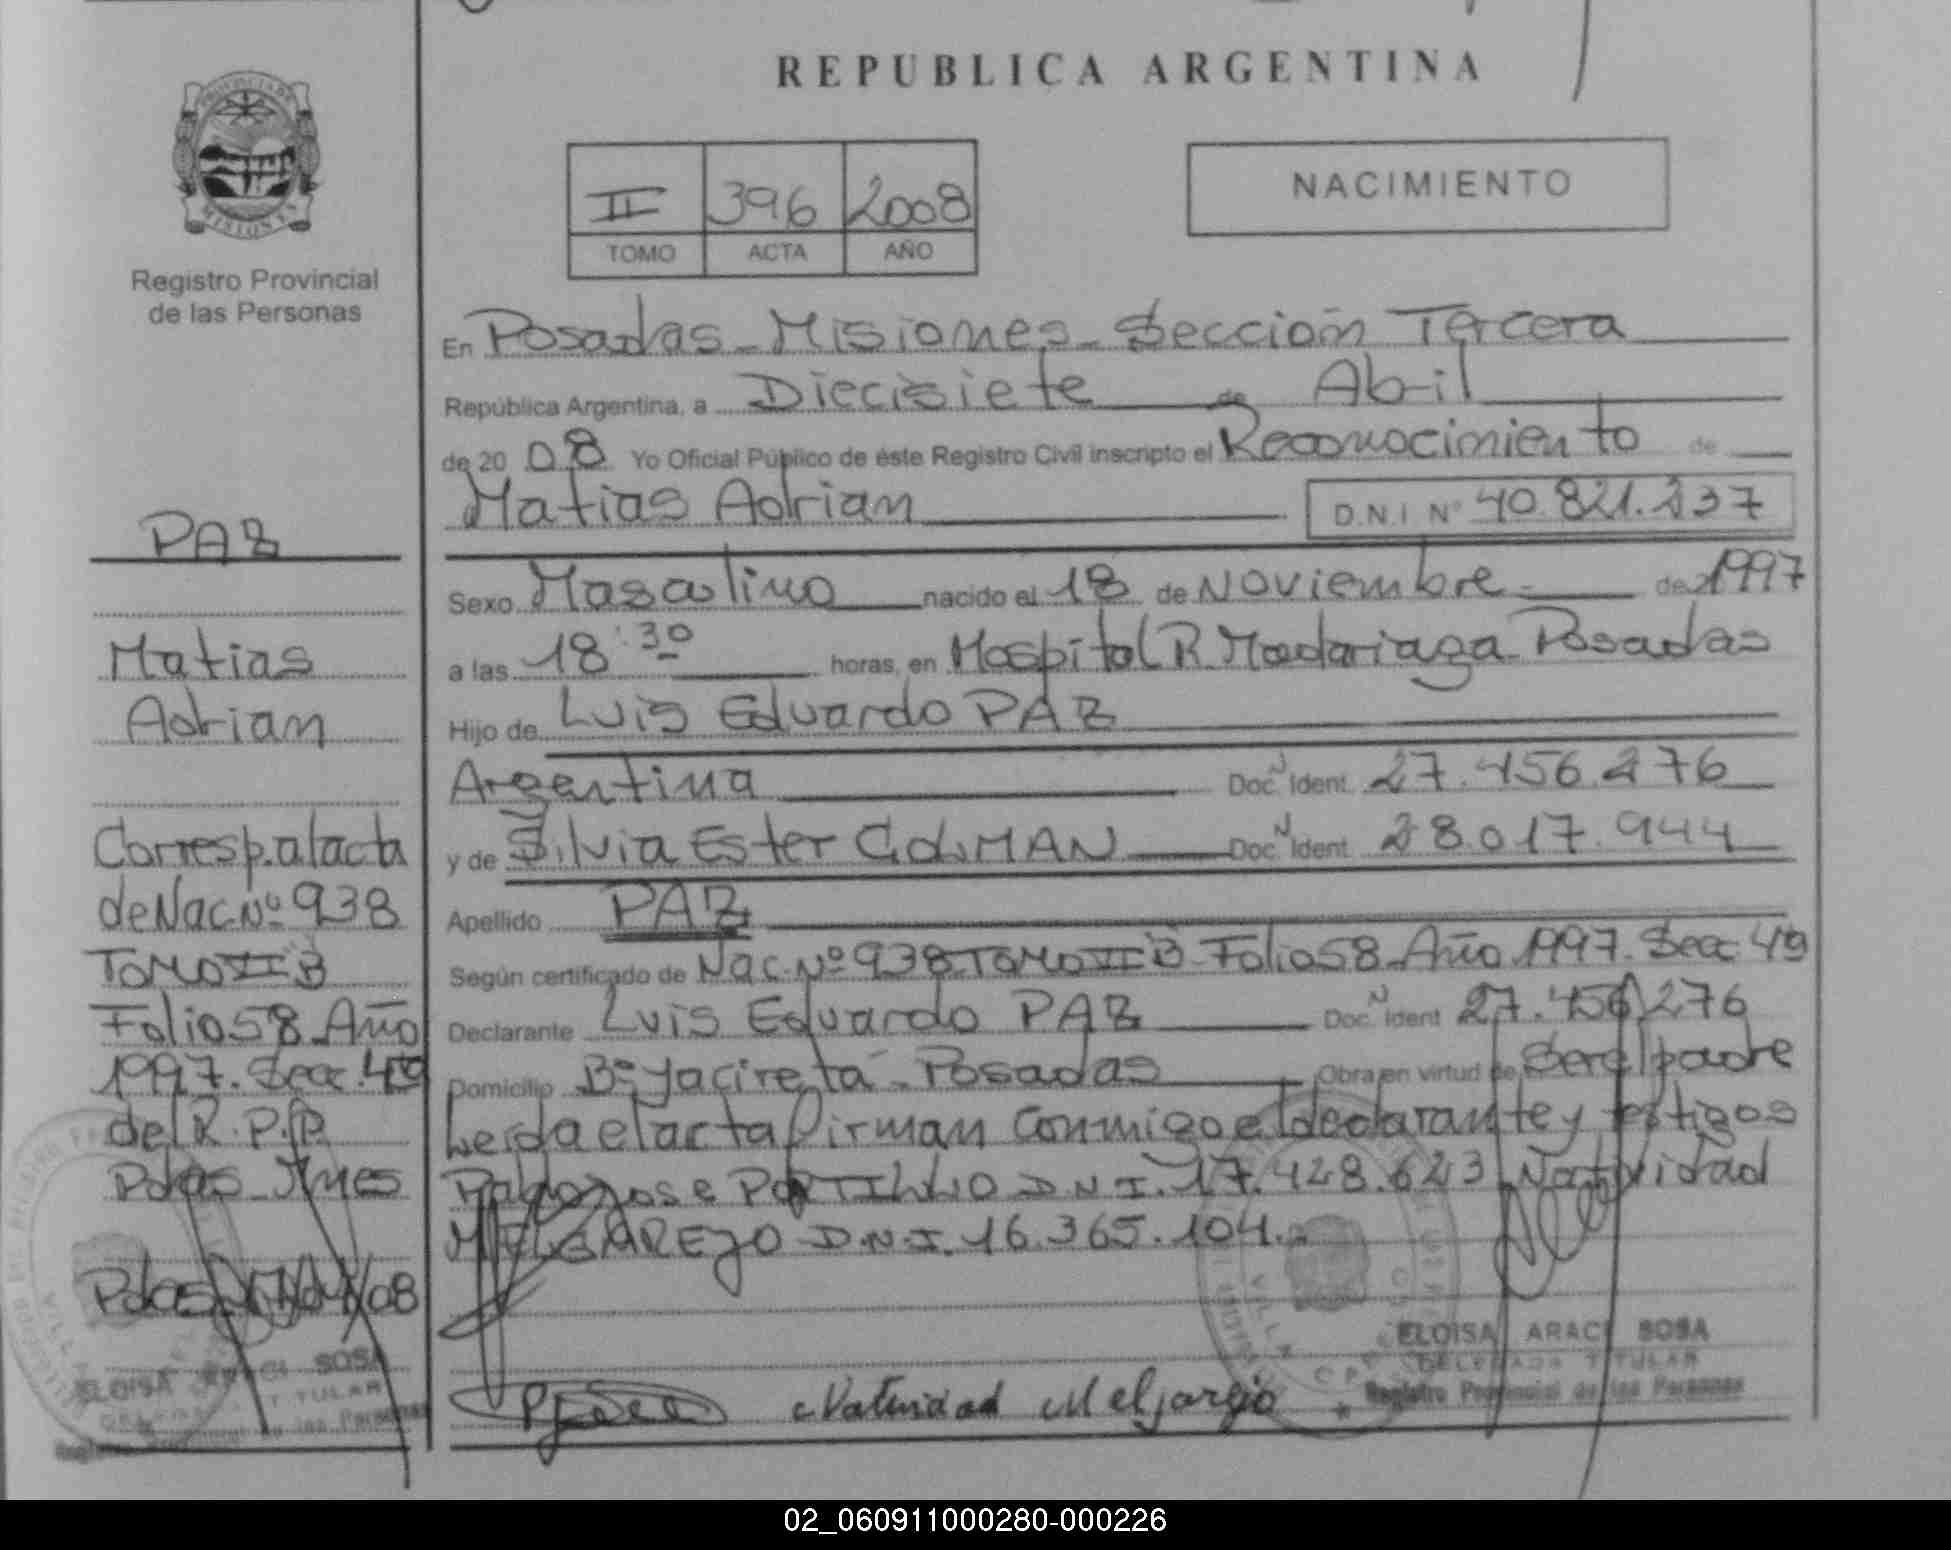 REPUBLICA ARGENTINA
PROVINCIA DE
MISIONES
Registro Provincial
de las Personas
II 396 2008
TOMO ACTA AÑO
NACIMIENTO
En Posadas - Misiones - Sección Tercera
República Argentina, a Diecisiete de Abril
de 20 08 Yo Oficial Público de éste Registro Civil inscripto el Reconocimiento de
Matias Adrian D.N.I Nº 40.821.237
Sexo Masculino nacido el 18 de Noviembre - de 1997
a las 18:30 horas, en Hospital R. Madariaga - Posadas
Hijo de Luis Eduardo PAZ
Argentina Doc. Ident. 27.456.276
y de Silvia Ester GOLMAN Doc. Ident. 28.017.944
Apellido PAZ
Según certificado de Nac. Nº 938 TOMO VI B Folio 58 - Año 1997. Secc 4º
Declarante Luis Eduardo PAZ Doc. Ident 27.456.276
Domicilio Bº Yacireta - Posadas Obra en virtud de Ser el padre
Leida el acta firman conmigo el declarante y testigos
PORTILLO D.N.I. 17.428.623 Natividad
MELGAREJO D.N.I. 16.365.104.-
Natividad Meljarejo
ELOISA ARACI SOSA
DELEGADA TITULAR
Registro Provincial de las Personas
PAZ
Matias
Adrian
Corresp. al acta
de Nac. Nº 938
TOMO VI B
Folio 58 - Año
1997. Secc. 4º
del R.P.P.
Pdas - Mnes
Pdas 17/04/08
ELOISA ARACI SOSA
DELEGADA TITULAR
Registro Provincial de las Personas
02_060911000280-000226